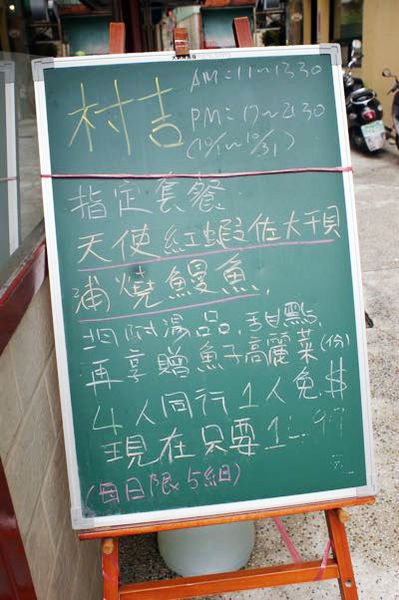 村吉
AM:11~13:30
PM:17~21:30
(10/1~10/31)
指定套餐
天使紅蝦佐大干貝
浦燒鰻魚,
均附湯品,甜點,
再享贈魚子高麗菜(份)
4人同行1人免$
現在只要1
(每日限5組)